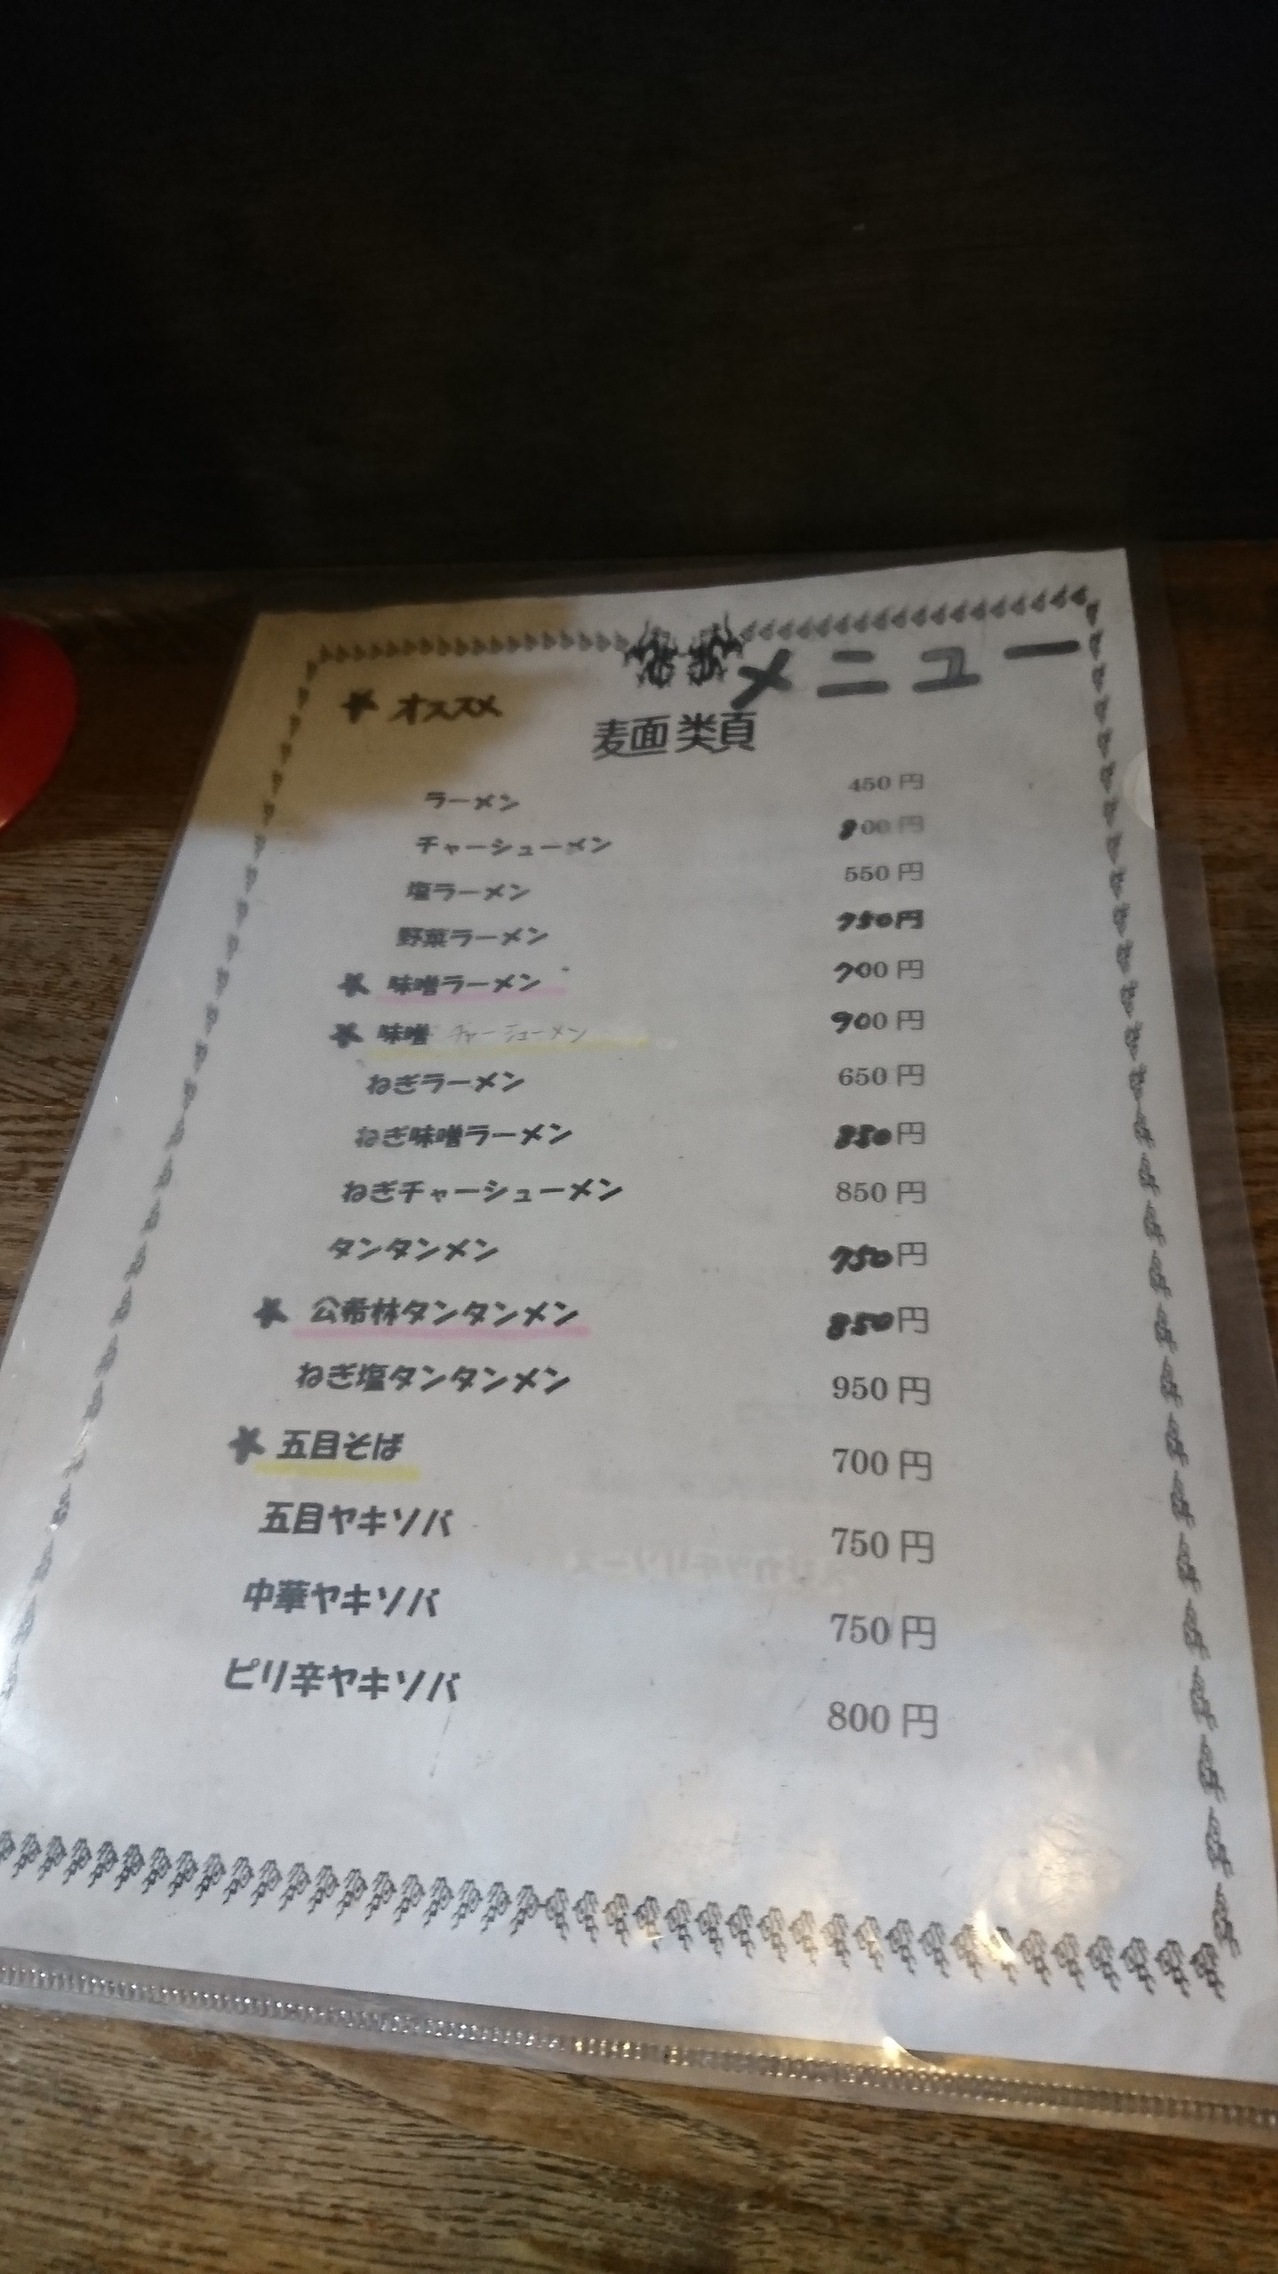 メニュー
★ オススメ
麺類
ラーメン 450円
チャーシューメン 800円
塩ラーメン 550円
野菜ラーメン 750円
★ 味噌ラーメン 700円
★ 味噌チャーシューメン 900円
ねぎラーメン 650円
ねぎ味噌ラーメン 850円
ねぎチャーシューメン 850円
タンタンメン 750円
★ 公希林タンタンメン 850円
ねぎ塩タンタンメン 950円
★ 五目そば 700円
五目ヤキソバ 750円
中華ヤキソバ 750円
ピリ辛ヤキソバ 800円